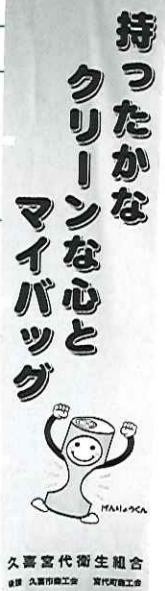 持ったかな
クリーンな心と
マイバッグ
げんりょうくん
久喜宮代衛生組合
後援 久喜市商工会 宮代町商工会